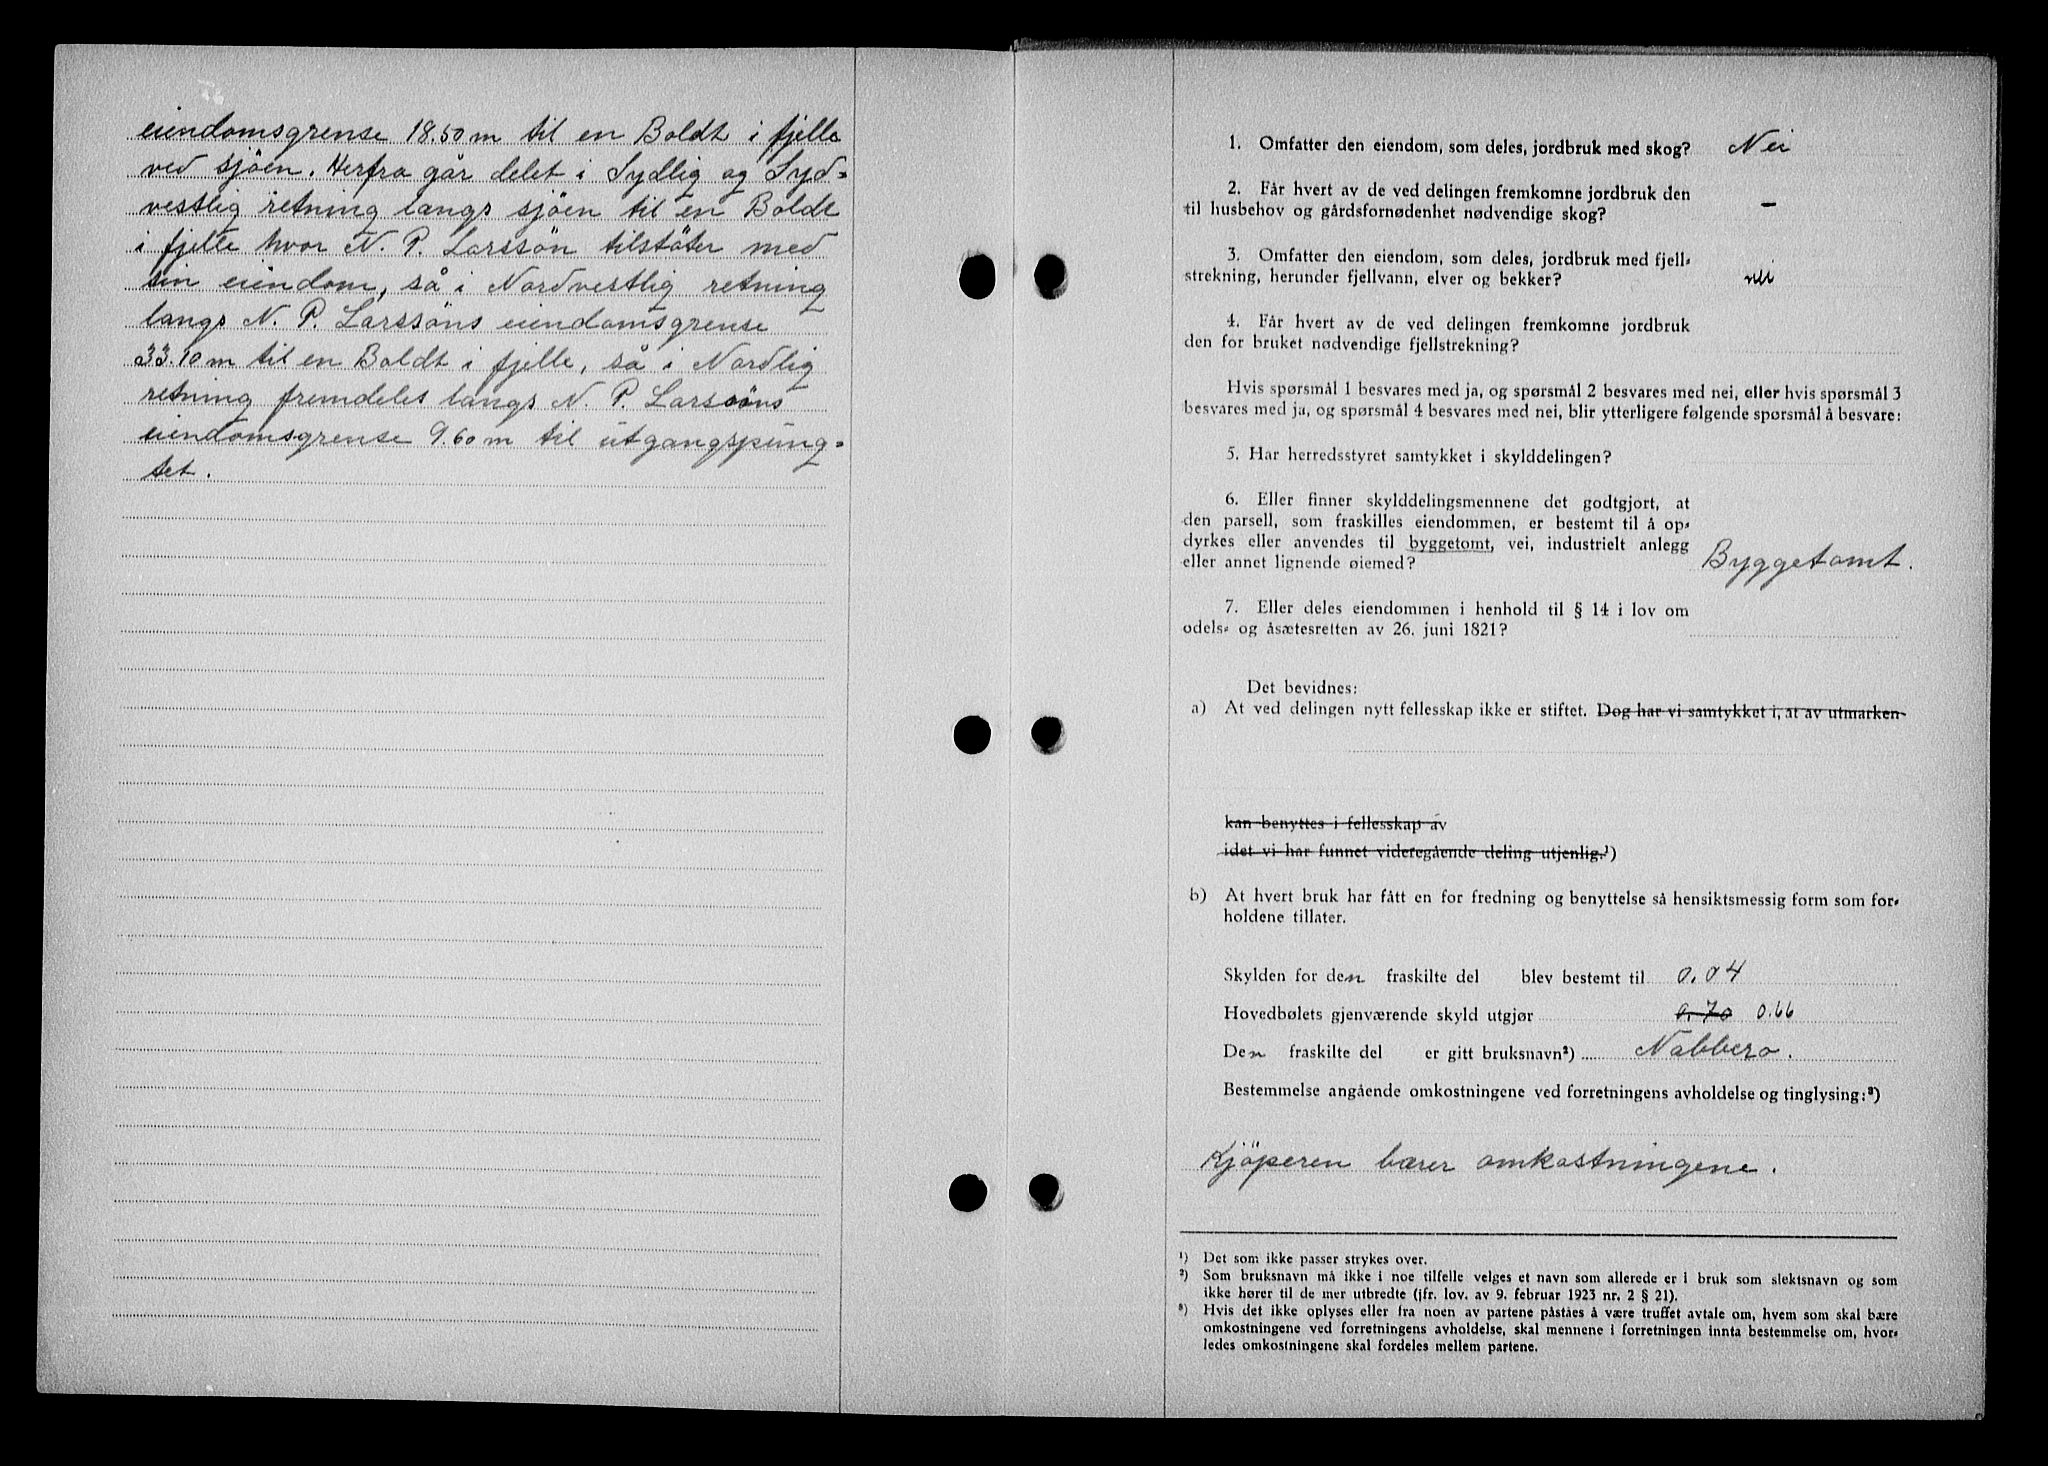 eiendomsgrense 18.50 m til en Boldt i fjelle
ved sjöen. Herfra går delet i Sydlig og Syd=
vestlig retning langs sjöen til en Boldt
i fjelle hvor N. P. Larssön tilstöter med
sin eiendom, så i Nordvestlig retning
langs N. P. Larssöns eiendomsgrense
33.10 m til en Boldt i fjelle, så i Nordlig
retning fremdeles langs N. P. Larssöns
eiendomsgrense 9.60 m til utgangspung=
tet.
1. Omfatter den eiendom, som deles, jordbruk med skog? Nei
2. Får hvert av de ved delingen fremkomne jordbruk den
til husbehov og gårdsfornødenhet nødvendige skog? –
3. Omfatter den eiendom, som deles, jordbruk med fjell-
strekning, herunder fjellvann, elver og bekker? nei
4. Får hvert av de ved delingen fremkomne jordbruk
den for bruket nødvendige fjellstrekning?
Hvis spørsmål 1 besvares med ja, og spørsmål 2 besvares med nei, eller hvis spørsmål 3
besvares med ja, og spørsmål 4 besvares med nei, blir ytterligere følgende spørsmål å besvare:
5. Har herredsstyret samtykket i skylddelingen?
6. Eller finner skylddelingsmennene det godtgjort, at
den parsell, som fraskilles eiendommen, er bestemt til å op-
dyrkes eller anvendes til byggetomt, vei, industrielt anlegg
eller annet lignende øiemed? Byggetomt.
7. Eller deles eiendommen i henhold til § 14 i lov om
odels- og åsætesretten av 26. juni 1821?
Det bevidnes:
a) At ved delingen nytt fellesskap ikke er stiftet. Dog har vi samtykket i, at av utmarken
kan benyttes i fellesskap av
idet vi har funnet videregående deling utjenlig.¹)
b) At hvert bruk har fått en for fredning og benyttelse så hensiktsmessig form som for-
holdene tillater.
Skylden for den fraskilte del blev bestemt til 0.04
Hovedbølets gjenværende skyld utgjør 0.70 0.66
Den fraskilte del er gitt bruksnavn²) Nabbero.
Bestemmelse angående omkostningene ved forretningens avholdelse og tinglysing:³)
Kjöperen bærer omkostningene.
¹) Det som ikke passer strykes over.
²) Som bruksnavn må ikke i noe tilfelle velges et navn som allerede er i bruk som slektsnavn og som
ikke hører til de mer utbredte (jfr. lov. av 9. februar 1923 nr. 2 § 21).
³) Hvis det ikke oplyses eller fra noen av partene påståes å være truffet avtale om, hvem som skal bære
omkostningene ved forretningens avholdelse, skal mennene i forretningen innta bestemmelse om, hvor-
ledes omkostningene skal fordeles mellem partene.